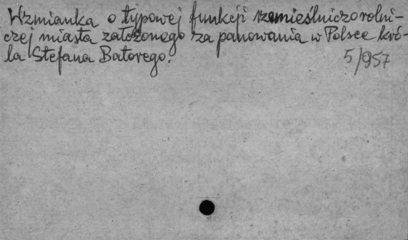 Wzmianka o typowej funkcji rzemieślniczorolni-
czej miasta założonego za panowania w Polsce kró-
la Stefana Batorego.
5/957